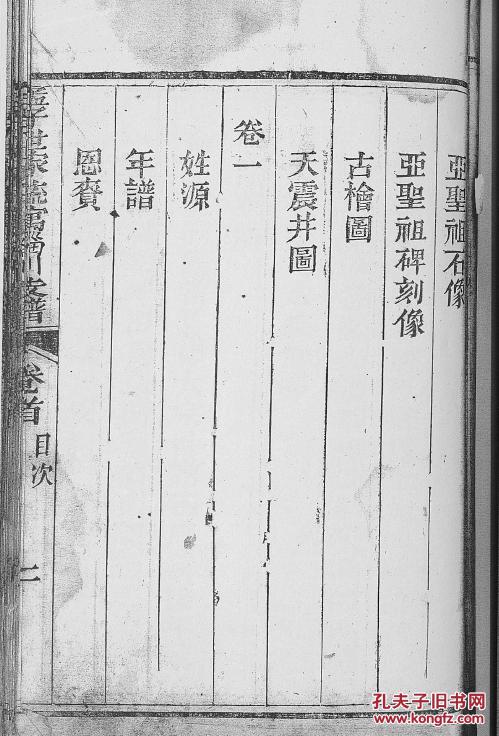 亞聖祖石像
亞聖祖碑刻像
古檜圖
天震井圖
卷一
姓源
年譜
恩賚
孟子世家流寓
支譜
卷首
目次
二
孔夫子旧书网
www.kongfz.com